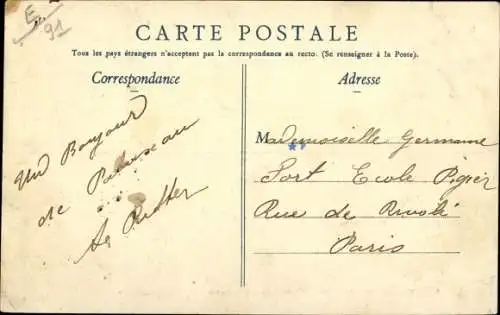 E
91
CARTE POSTALE
Tous les pays étrangers n'acceptent pas la correspondance au recto. (Se renseigner à la Poste).
Correspondance
Un Bonjour
de Palaiseau
Adresse
Mademoiselle Germaine
Port Ecole Pigier
Rue de Rivoli
Paris